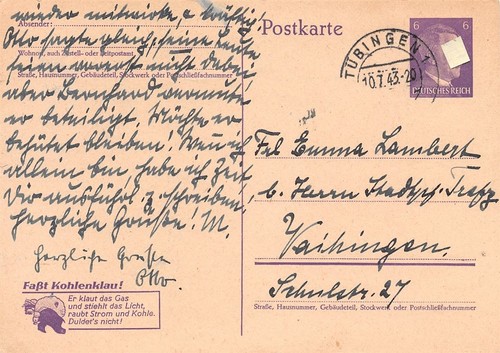 wieder mitwirke, & kräftig
Absender:
Otto sagte gleich, seine Leute
Wohnort, auch Zustell- oder Leitpostamt
seien vorerst nicht dabei
Straße, Hausnummer, Gebäudeteil, Stockwerk oder Postschließfachnummer
aber Bernhard vermute
er beteiligt. Möchte er
behütet bleiben! Wenn ich
allein bin, habe ich Zeit
Dir ausführl. z. schreiben.
Herzliche Grüße! M.
Herzliche Grüsse
Otto.
Faßt Kohlenklau!
Er klaut das Gas
und stiehlt das Licht,
raubt Strom und Kohle.
Duldet's nicht!
Postkarte
TÜBINGEN 1
10.7.43-20
6 6
DEUTSCHES REICH
Frl Emma Lambert
b. Herrn Stadtpf.
Vaihingen
Schulstr. 27
Straße, Hausnummer, Gebäudeteil, Stockwerk oder Postschließfachnummer